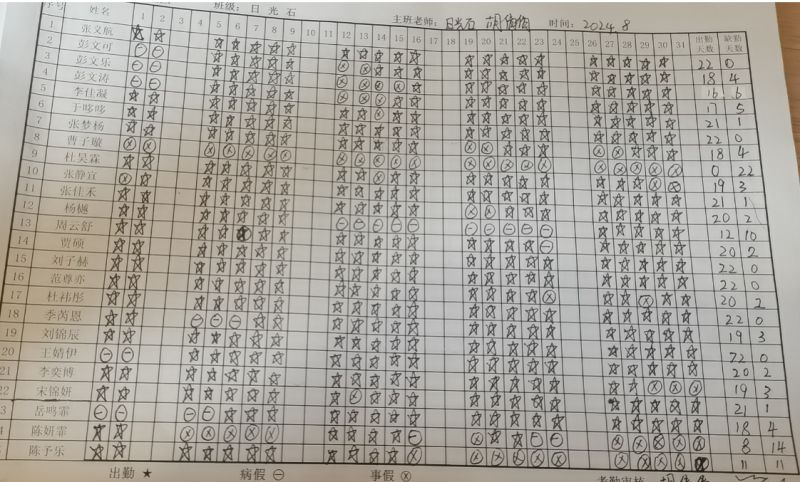 序号 姓名 班级：日光石 主班老师：日光石 时间：2024.8
1 2 3 4 5 6 7 8 9 10 11 12 13 14 15 16 17 18 19 20 21 22 23 24 25 26 27 28 29 30 31 出勤天数 缺勤天数
1 张义航 22 0
2 彭文可 18 4
3 彭文乐 16 6
4 彭文涛 17 5
5 李佳凝 21 1
6 于哆哆 22 0
7 张梦杨 18 4
8 曹子璇 0 22
9 杜昊霖 19 3
10 张静宜 21 1
11 张佳禾 20 2
12 杨樾 12 10
13 周云舒 20 2
14 贾硕 22 0
15 刘子赫 22 0
16 范尊亦 20 2
17 杜祎彤 22 0
18 李芮恩 19 3
19 刘锦辰 22 0
20 王婧伊 20 2
21 李奕博 19 3
22 宋锦妍 21 1
3 岳鸣霏 18 4
4 陈妍霏 8 14
陈予乐 11 11
出勤 ★ 病假 ⊖ 事假 ⊗ 考勤审核